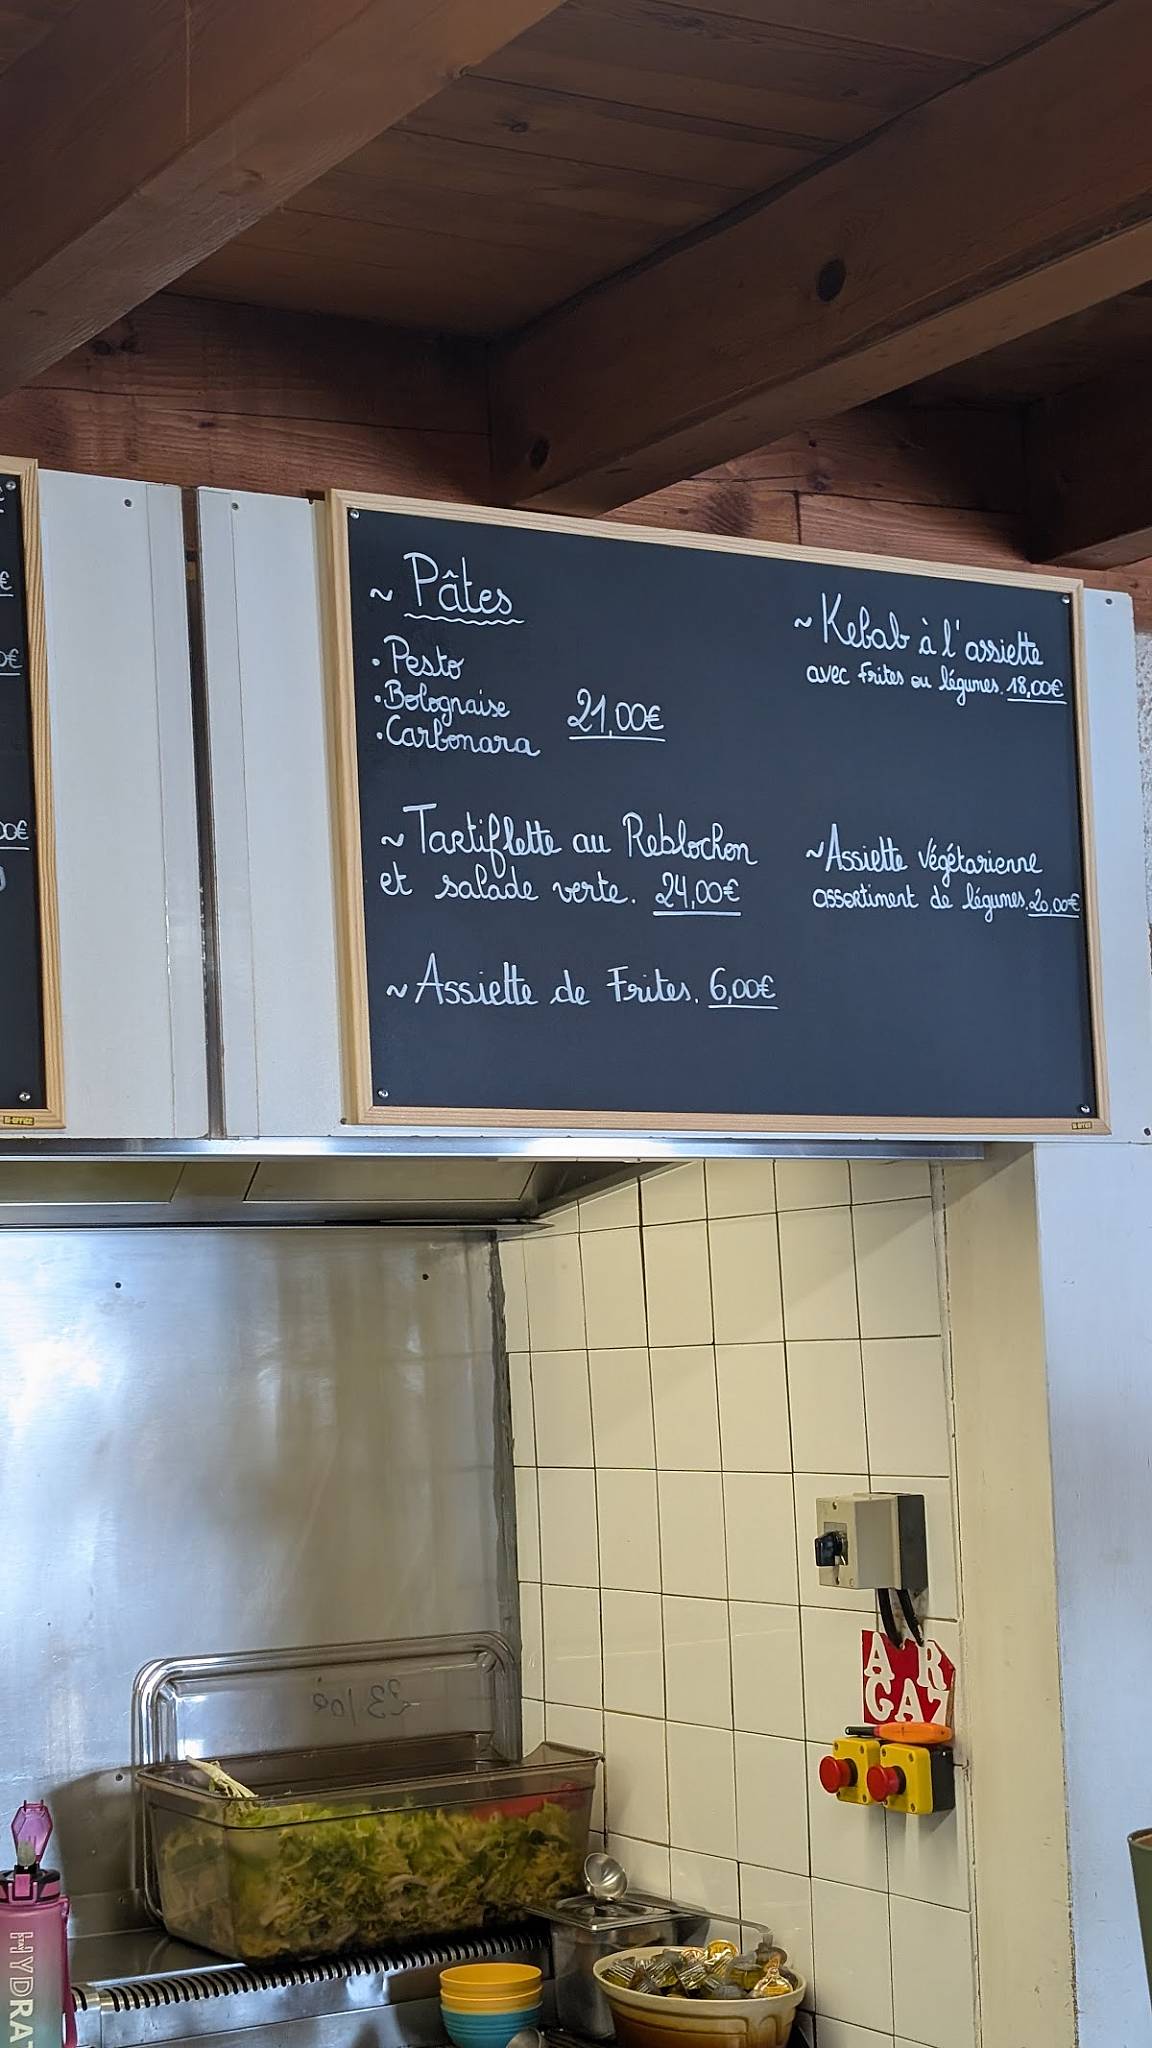 ~ Pâtes
• Pesto
• Bolognaise
• Carbonara
21,00€
~ Tartiflette au Reblochon
et salade verte. 24,00€
~ Assiette de Frites. 6,00€
~ Kebab à l'assiette
avec frites ou légumes. 18,00€
~ Assiette Végétarienne
assortiment de légumes. 20,00€
€
0€
00€
A R
GAZ
23/09
STAY
HYDRAT